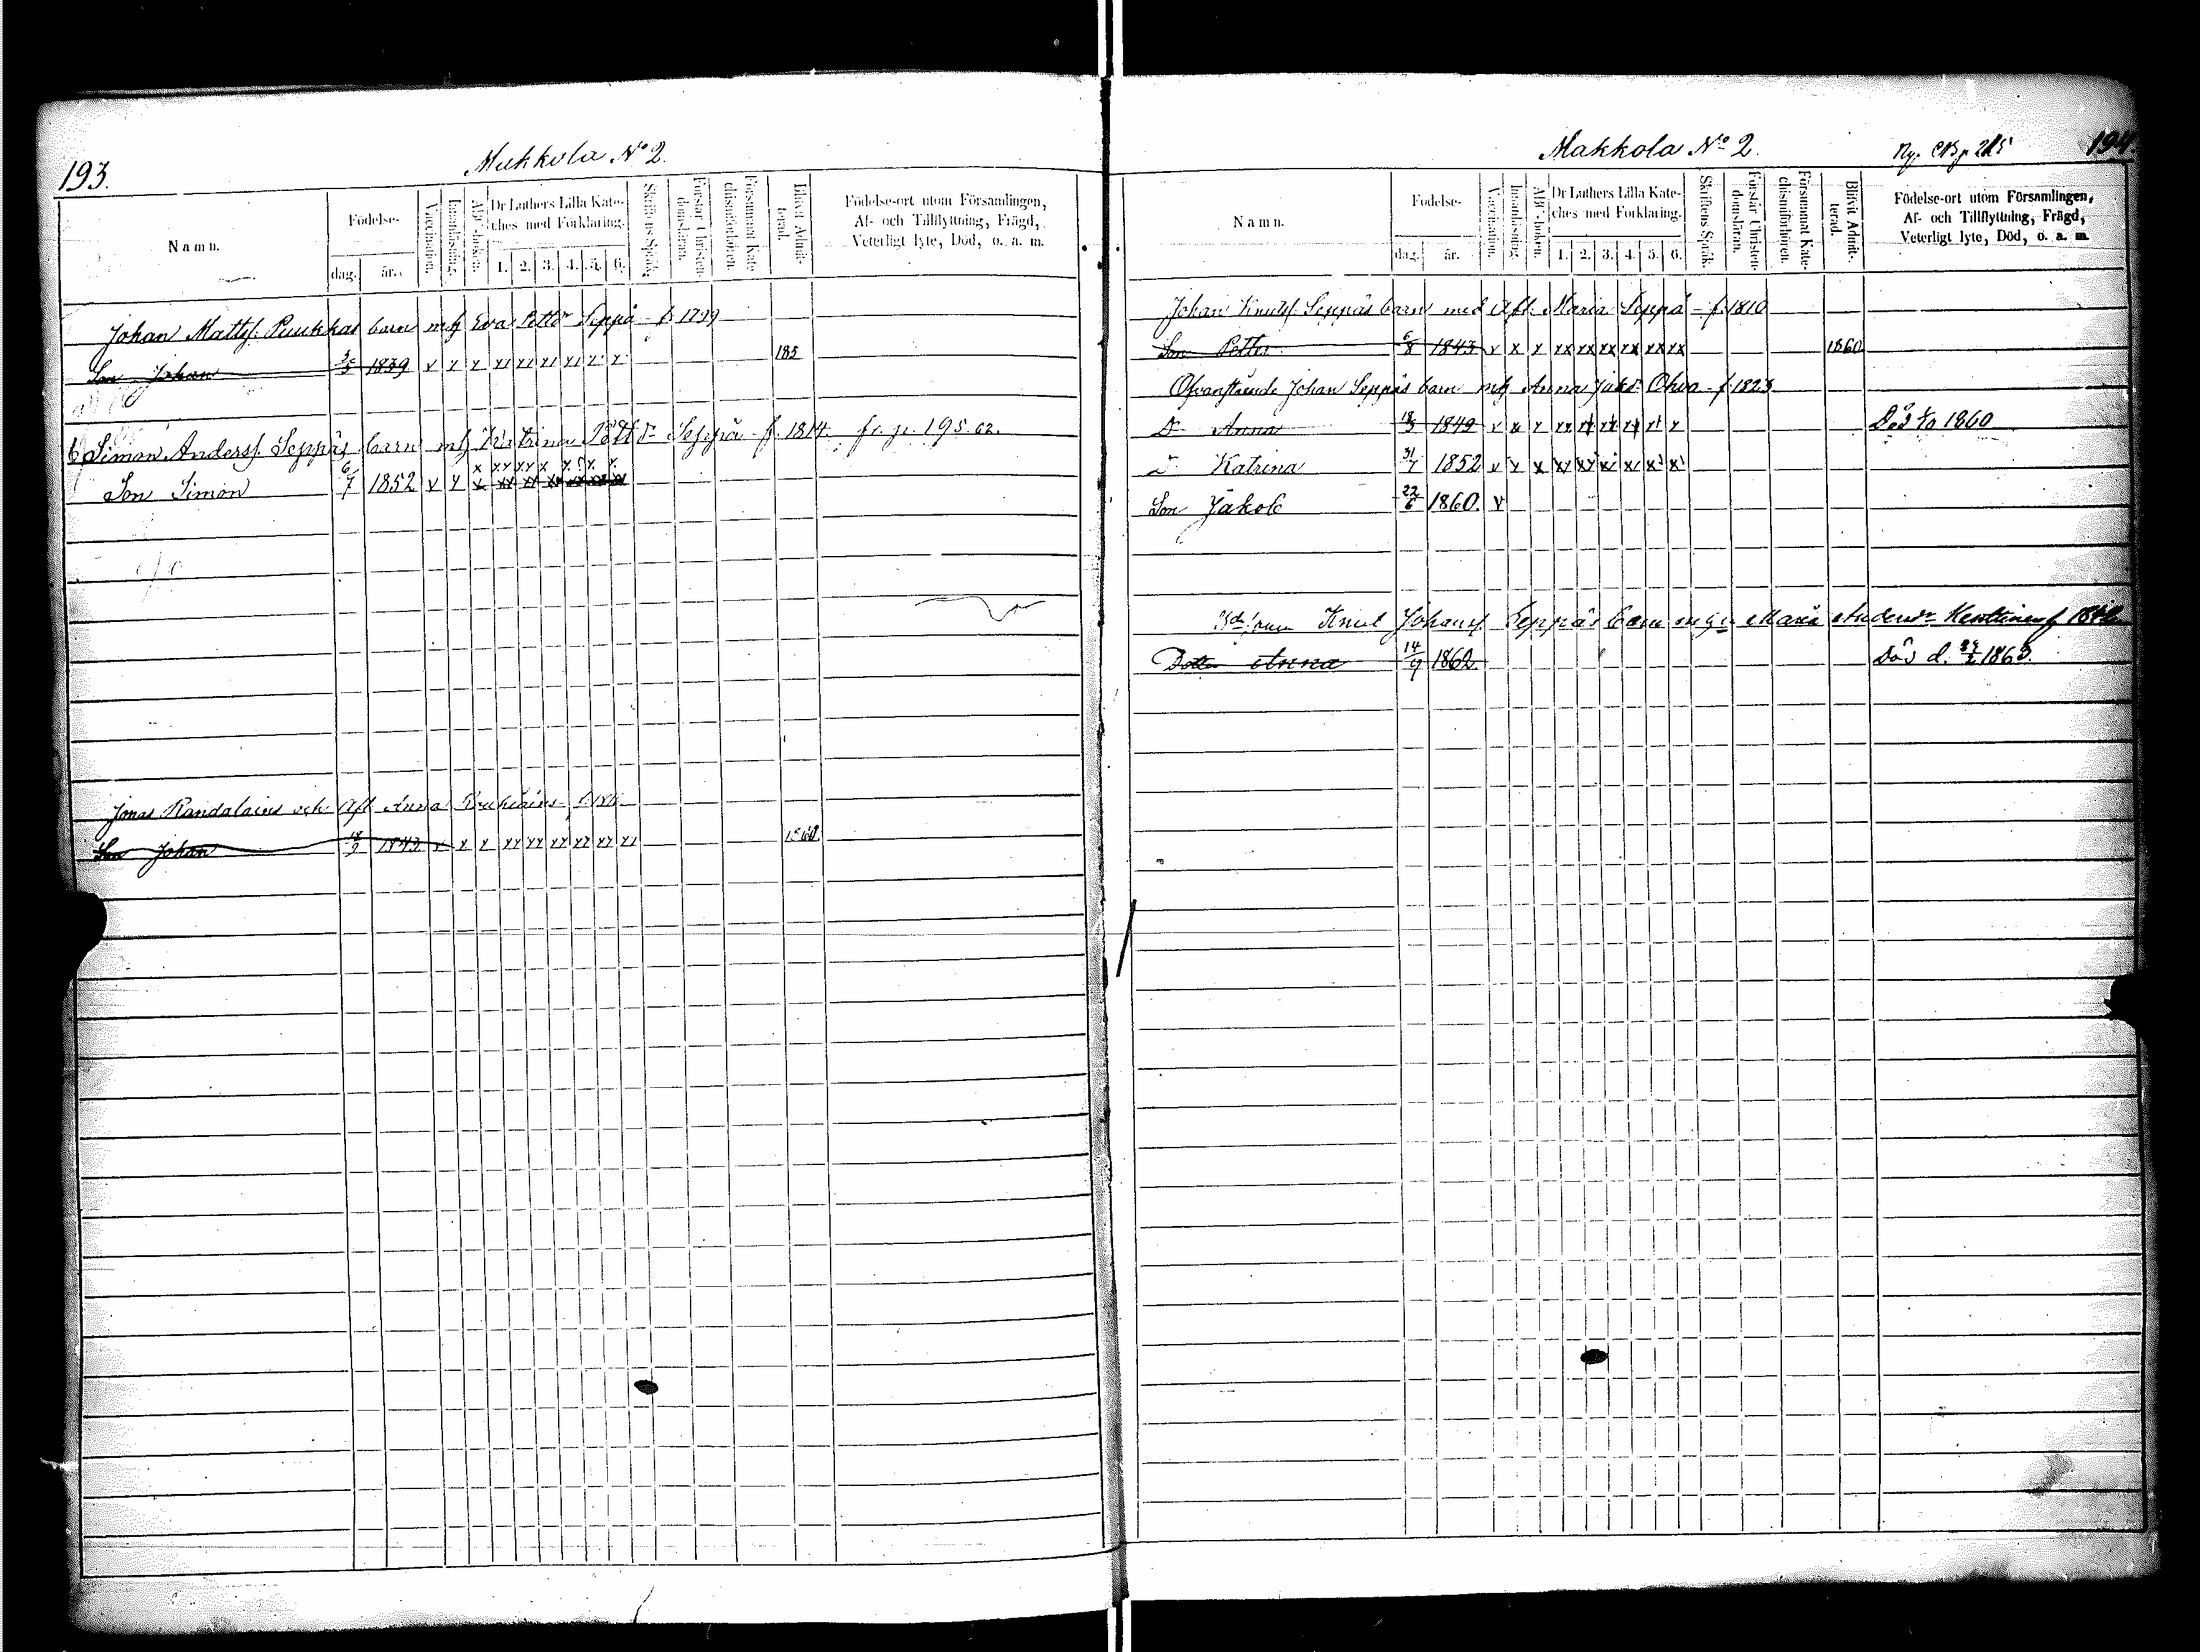 193.
Makkola No 2.
Namn.
Födelse-
dag.
år.
Vaccination.
Innanläsning.
ABC-boken.
Dr Luthers Lilla Kate-
ches med Förklaring.
1. 2. 3. 4. 5. 6.
Skriftens Språk.
Förstår Christen-
domsläran.
Försummat Kate-
chismiförhören.
Blifvit Admit-
terad.
Födelse-ort utom Församlingen,
Af- och Tillflyttning, Frägd,
Veterligt lyte, Död, o. a. m.
Johan Mattsf. Puukkas barn m.h. Eva Pettdr Seppä - f. 1799
Son Johan 3/5 1839 v x x xx xx xx xx x x 185
Simon Andersf. Seppäs barn m.h. Katrina Pettdr Seppä - f. 1814. fr. p. 195. 62.
x xx xx x x x x
Son Simon 6/7 1852 v x x xx xx xx xx xx xx
Jonas Randalains och Afl. Anna
Son Johan 18/9 1843 v x x xx xx xx xx xx xx 1860
Makkola No 2.
Ny. CB p. 215
194
Namn.
Födelse-
dag.
år.
Vaccination.
Innanläsning.
ABC-boken.
Dr Luthers Lilla Kate-
ches med Förklaring.
1. 2. 3. 4. 5. 6.
Skriftens Språk.
Förstår Christen-
domsläran.
Försummat Kate-
chismiförhören.
Blifvit Admit-
terad.
Födelse-ort utom Församlingen,
Af- och Tillflyttning, Frägd,
Veterligt lyte, Död, o. a. m.
Johan Knutsf. Seppäs barn med Afl. Maria Seppä - f. 1810
Son Petter 6/8 1843 v x x xx xx xx xx xx xx 1860
Ofvanstående Johan Seppäs barn m.h. Anna Jakdr Ohva - f. 1823
Dr Anna 18/3 1849 v x x xx xx xx xx x x Död 1860
Dr Katrina 31/7 1852 v x x xx xx xx xx xx xx
Son Jakob 22/6 1860. v
Knut Johansf. Seppäs barn m. Maria Andersdr
Dotter Anna 14/9 1862. Död d. 1863.